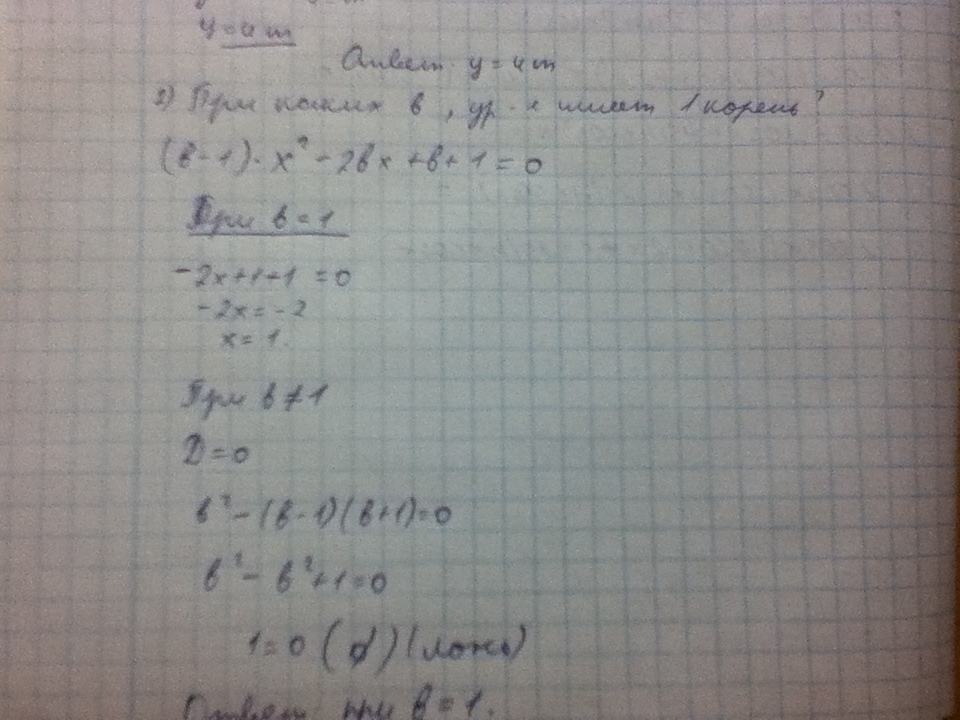 y=4m
Ответ. y=4m
2) При каких в, ур-е имеет 1 корень?
(в-1)·x²-2вx+в+1=0
При в=1
-2x+1+1=0
-2x=-2
x=1.
При в≠1
D=0
в²-(в-1)(в+1)=0
в²-в²+1=0
1=0 (∅) (ложь)
Ответ при в=1.